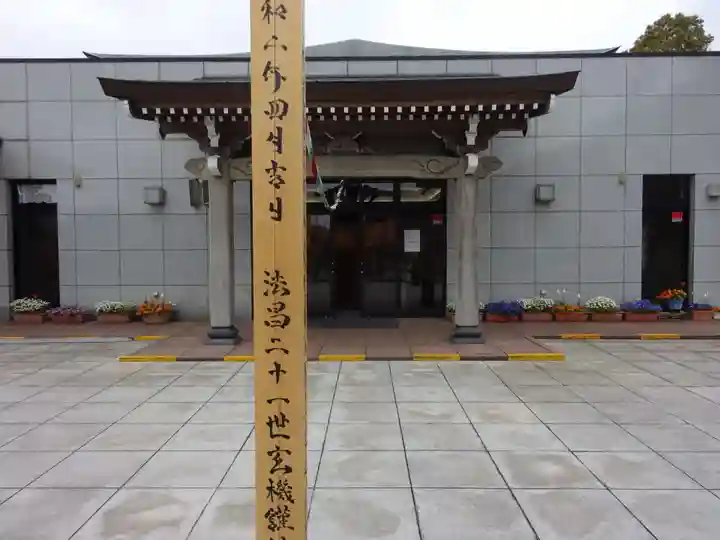 和二年四月吉日 法昌二十一世玄機謹